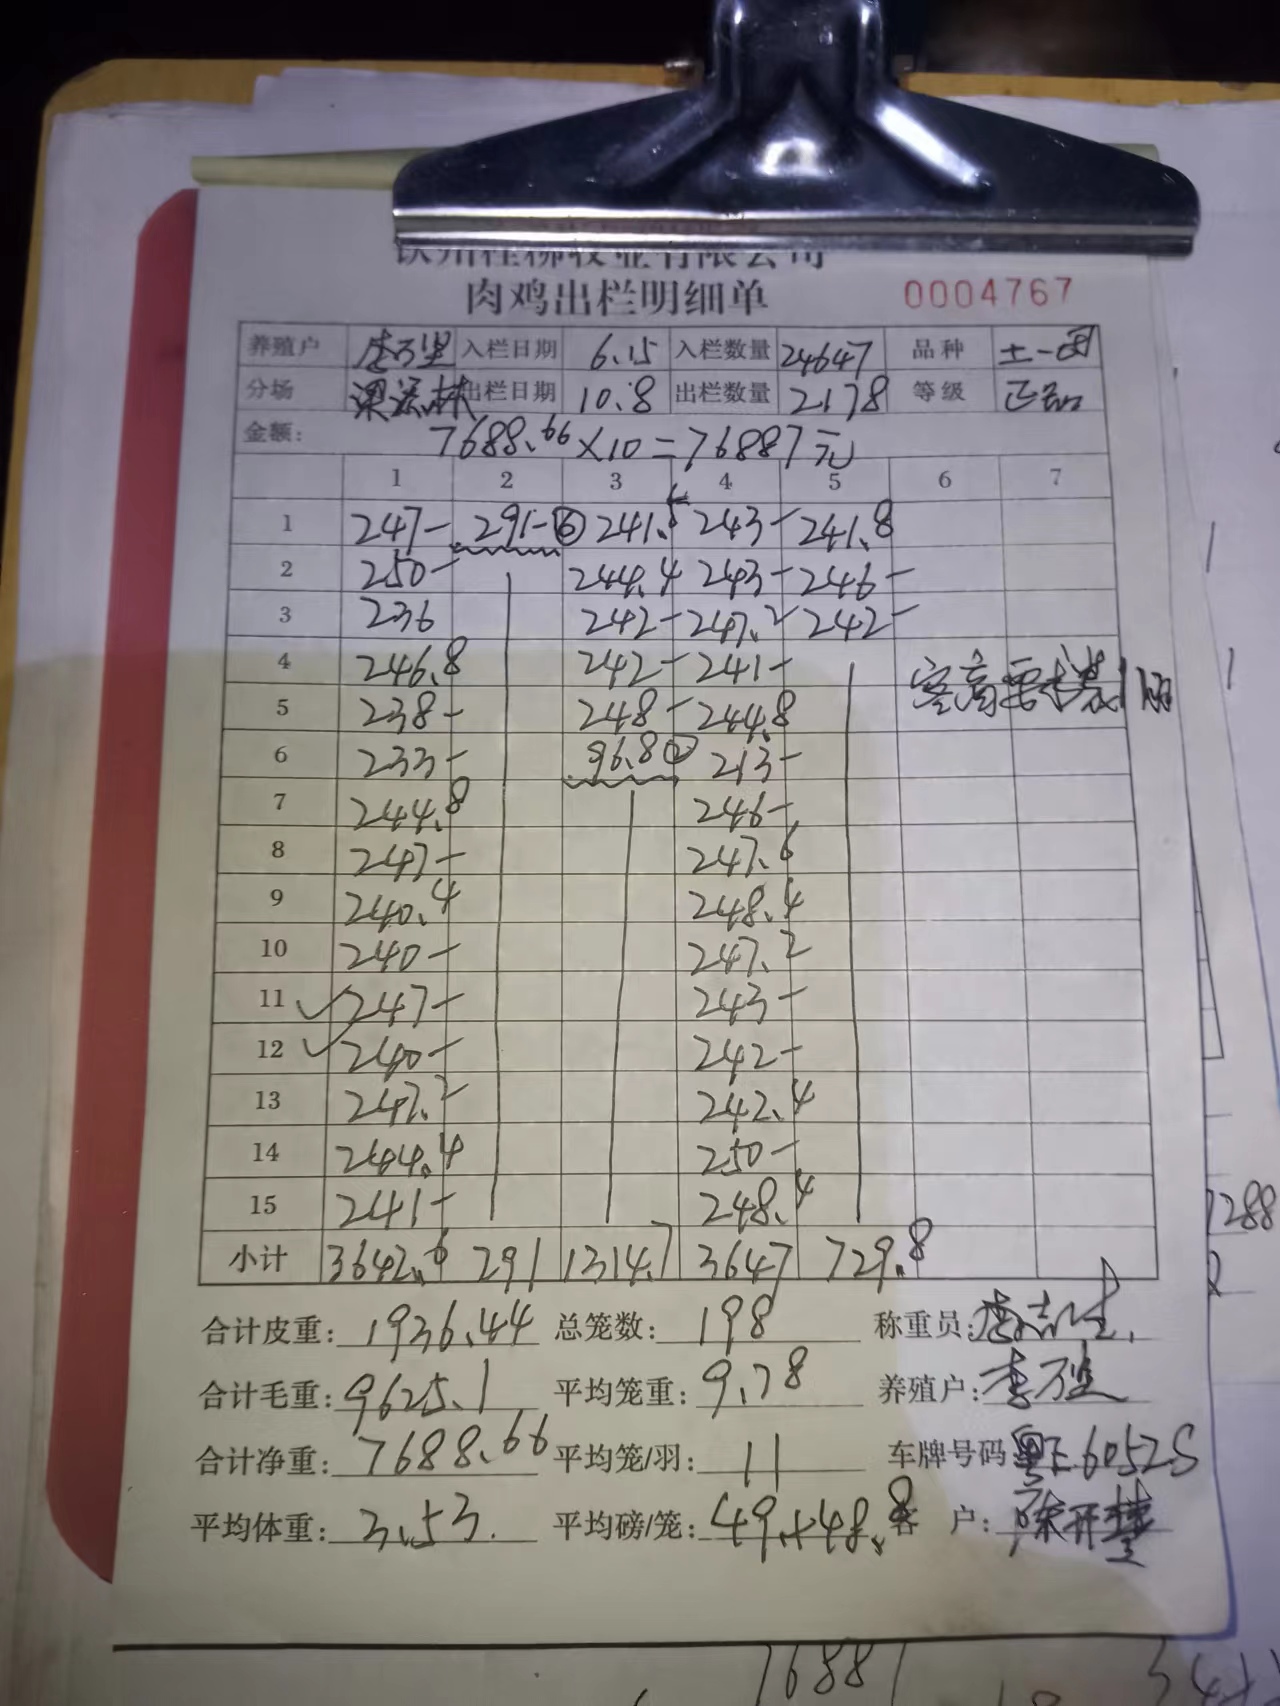 肉鸡出栏明细单 0004767
养殖户 李万坚 入栏日期 6.15 入栏数量 24647 品种 土一
分场 梁 林 出栏日期 10.8 出栏数量 2178 等级 正品
金额: 7688.66×10=76887元
1 2 3 4 5 6 7
1 247- 291-⑥ 241. 243- 241.8
2 250- 244.4 243- 246-
3 236 242- 247.2 242-
4 246.8 242- 241-
5 238- 248- 244.8 客商要求装11
6 233- 96.8② 213-
7 244.8 246-
8 247- 247.6
9 240.4 248.4
10 240- 247.2
11 247- 243-
12 240- 242-
13 247.2 242.4
14 244.4 250-
15 241- 248.4
小计 3642.6 291 1314.7 3647 729.8
合计皮重: 1936.44 总笼数: 198 称重员: 李志
合计毛重: 9625.1 平均笼重: 9.78 养殖户: 李万坚
合计净重: 7688.66 平均笼/羽: 11 车牌号码 粤E6052S
平均体重: 3.53. 平均磅/笼: 49.+48.8 客 户: 陈开
7688